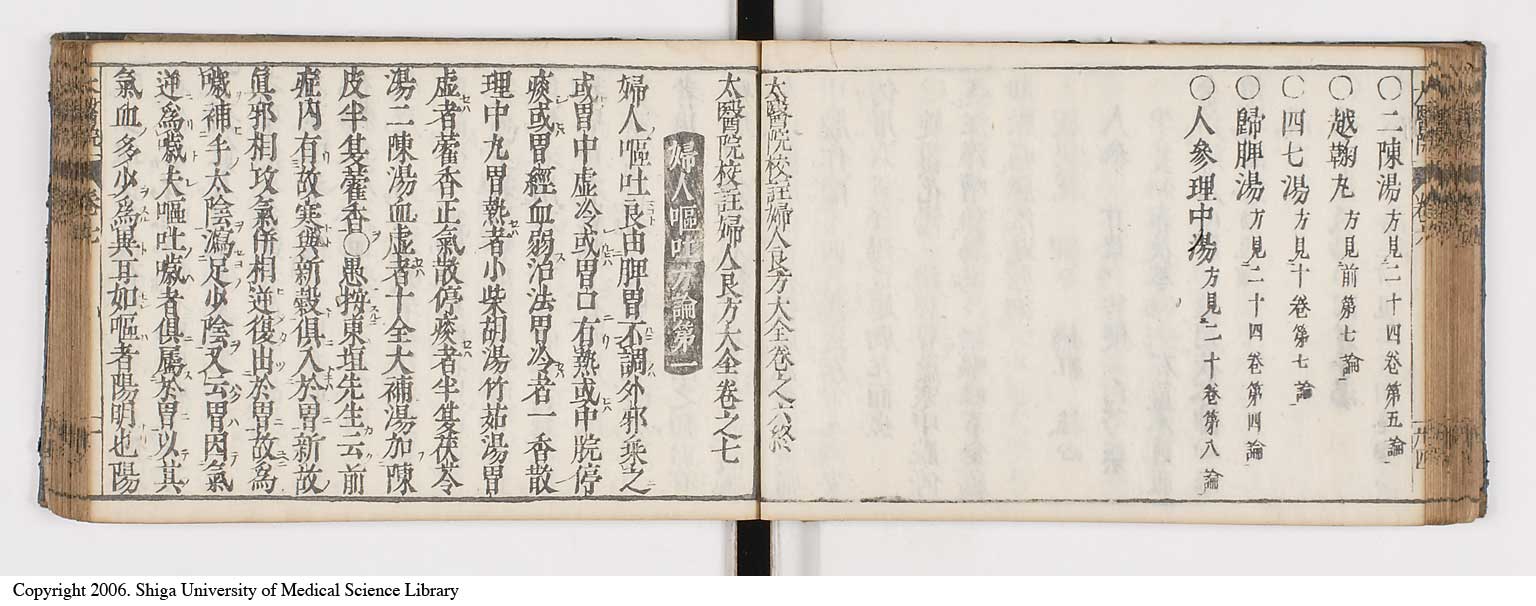 〇二陳湯方見二十四卷第五論
〇越鞠丸方見前第七論
〇四七湯方見十卷第七論
〇歸脾湯方見二十四卷第四論
〇人參理中湯方見二十卷第八論
太醫院校註婦人良方大全卷之六終
太醫院校註婦人良方大全卷之七
婦人嘔吐方論第一
婦人嘔吐良由脾胃不調外邪乘之
或胃中虛冷或胃口有熱或中脘停
痰或胃經血弱治法胃冷者一香散
理中丸胃熱者小柴胡湯竹茹湯胃
虛者藿香正氣散停痰者半夏茯苓
湯二陳湯血虛者十全大補湯加陳
皮半夏藿香〇愚按東垣先生云前
症內有故寒與新穀俱入於胃新故
真邪相攻氣併相逆復出於胃故爲
噦補手太陰瀉足少陰又云胃因氣
逆爲噦夫嘔吐噦者俱屬於胃以其
氣血多少爲異耳如嘔者陽明也陽
Copyright 2006. Shiga University of Medical Science Library